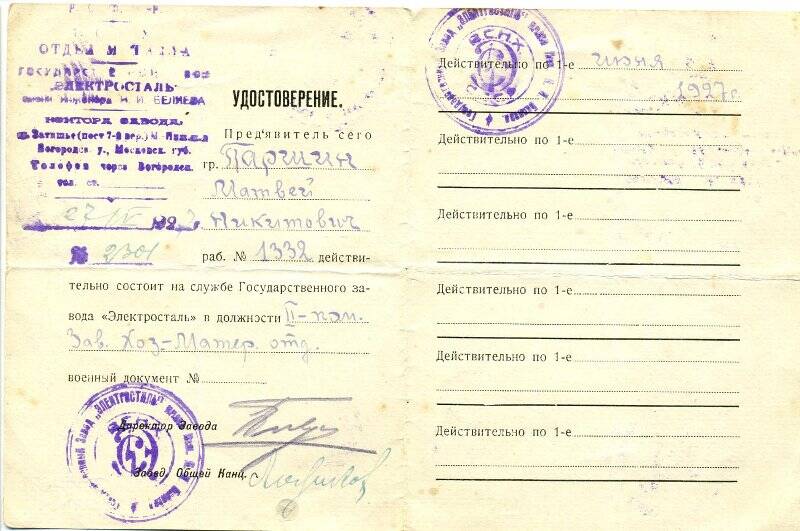 Р. С. Ф. С. Р.
ОТДЕЛ
ГОСУДАРСТ
"ЭЛЕКТРОСТАЛЬ"
имени Инженера Н. И. БЕЛЯЕВА
КОНТОРА ЗАВОДА:
Затишье (пост 7-й вер.)
Богородск. у., Московск. губ.
Телефон через Богородск.
тел. ст.
27/IV 1927 г.
№ 2301
УДОСТОВЕРЕНИЕ.
Пред'явитель сего
гр. Паршин
Матвей
Никитович
раб. № 1332 действи-
тельно состоит на службе Государственного за-
вода «Электросталь» в должности II-пом.
Зав. Хоз-Матер. отд.
военный документ №
Директор Завода
Завед. Общей Канц.
Завод „ЭЛЕКТРОСТАЛЬ"
В.С.Н.Х.
Действительно по 1-е июня
1927 г
Действительно по 1-е
Действительно по 1-е
Действительно по 1-е
Действительно по 1-е
Действительно по 1-е
Завод „ЭЛЕКТРОСТАЛЬ"
В.С.Н.Х.